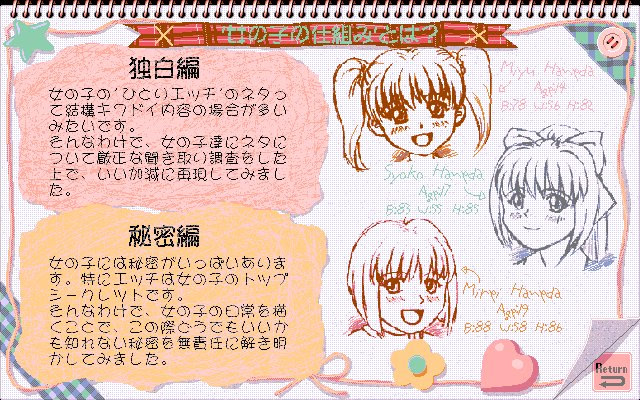 女の子の仕組みとは?
独白編
女の子の'ひとりエッチ'のネタっ
て結構キワドイ内容の場合が多い
みたいです。
そんなわけで、女の子達にネタに
ついて厳正な聞き取り調査をした
上で、いい加減に再現してみまし
た。
秘密編
女の子には秘密がいっぱいありま
す。特にエッチは女の子のトップ
シークレットです。
そんなわけで、女の子の日常を描
くことで、この際どうでもいいか
も知れない秘密を無責任に解き明
かしてみました。
Miyu Haneda
B:78 W:56 H:82
Syoko Haneda
Age:17
B:83 W:55 H:85
Haneda
Age:19
B:88 W:58 H:86
Return